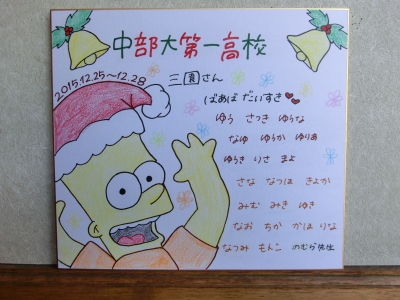 中部大第一高校
2015.12.25〜12.28
三園さん
ばあば だいすき
ゆう さつき ゆうな
なゆ ゆうか ゆりあ
ゆうき りさ まよ
さな なつほ きよか
みむ みき ゆき
なお ちか かほ りな
なつみ もんこ のむら先生